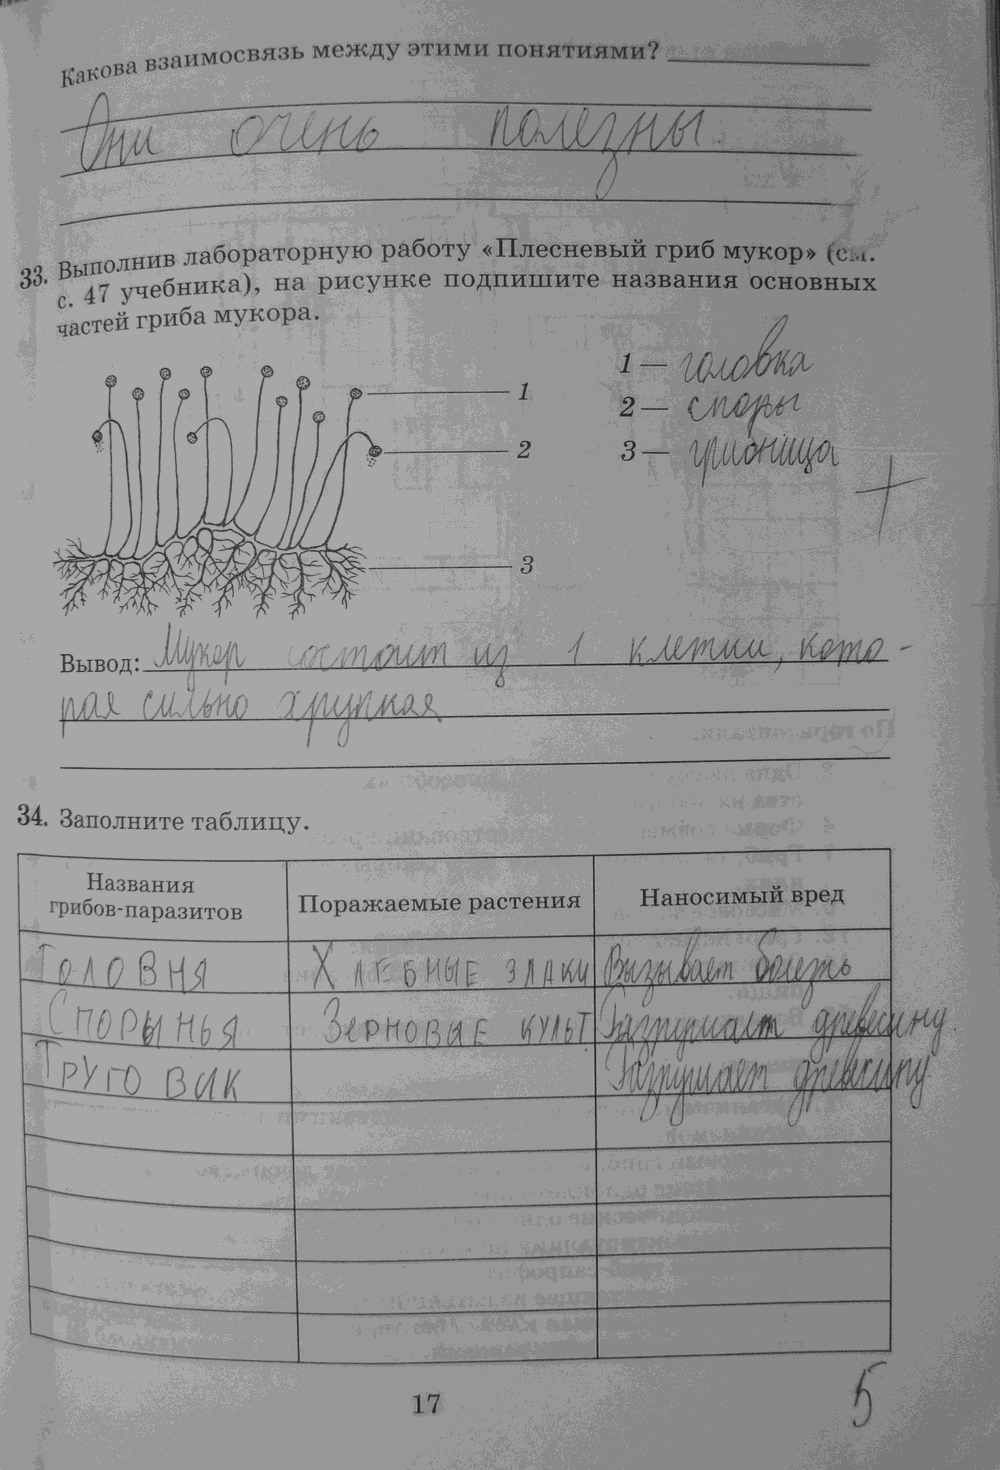 Какова взаимосвязь между этими понятиями?
Они очень полезны.
33. Выполнив лабораторную работу «Плесневый гриб мукор» (см.
с. 47 учебника), на рисунке подпишите названия основных
частей гриба мукора.
1
2
3
1 — головка
2 — споры
3 — грибница
+
Вывод: Мукор состоит из 1 клетки, кото-
рая сильно хрупкая
34. Заполните таблицу.
Названия грибов-паразитов Поражаемые растения Наносимый вред
Головня Хлебные злаки Вызывает болезнь
Спорынья Зерновые культ. Разрушает древесину.
Трутовик Разрушает древесину.
17
5